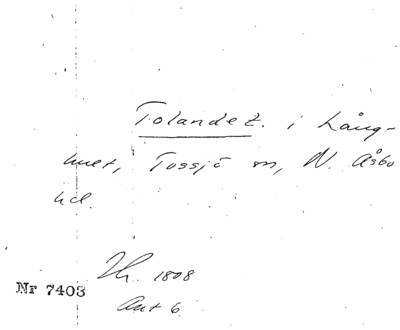 Tolandet. i Lång-
huet, Tossjö sn, N. Åsbo
hd.
Nr 7403
1808
Ant 6.